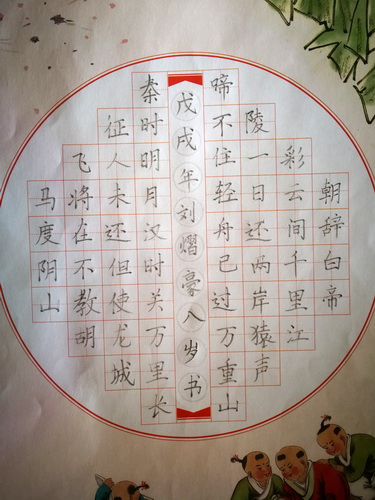 朝辞白帝
彩云间千里江
陵一日还两岸猿声
啼不住轻舟已过万重山
戊戌年刘熠豪八岁书
秦时明月汉时关万里长
征人未还但使龙城
飞将在不教胡
马度阴山